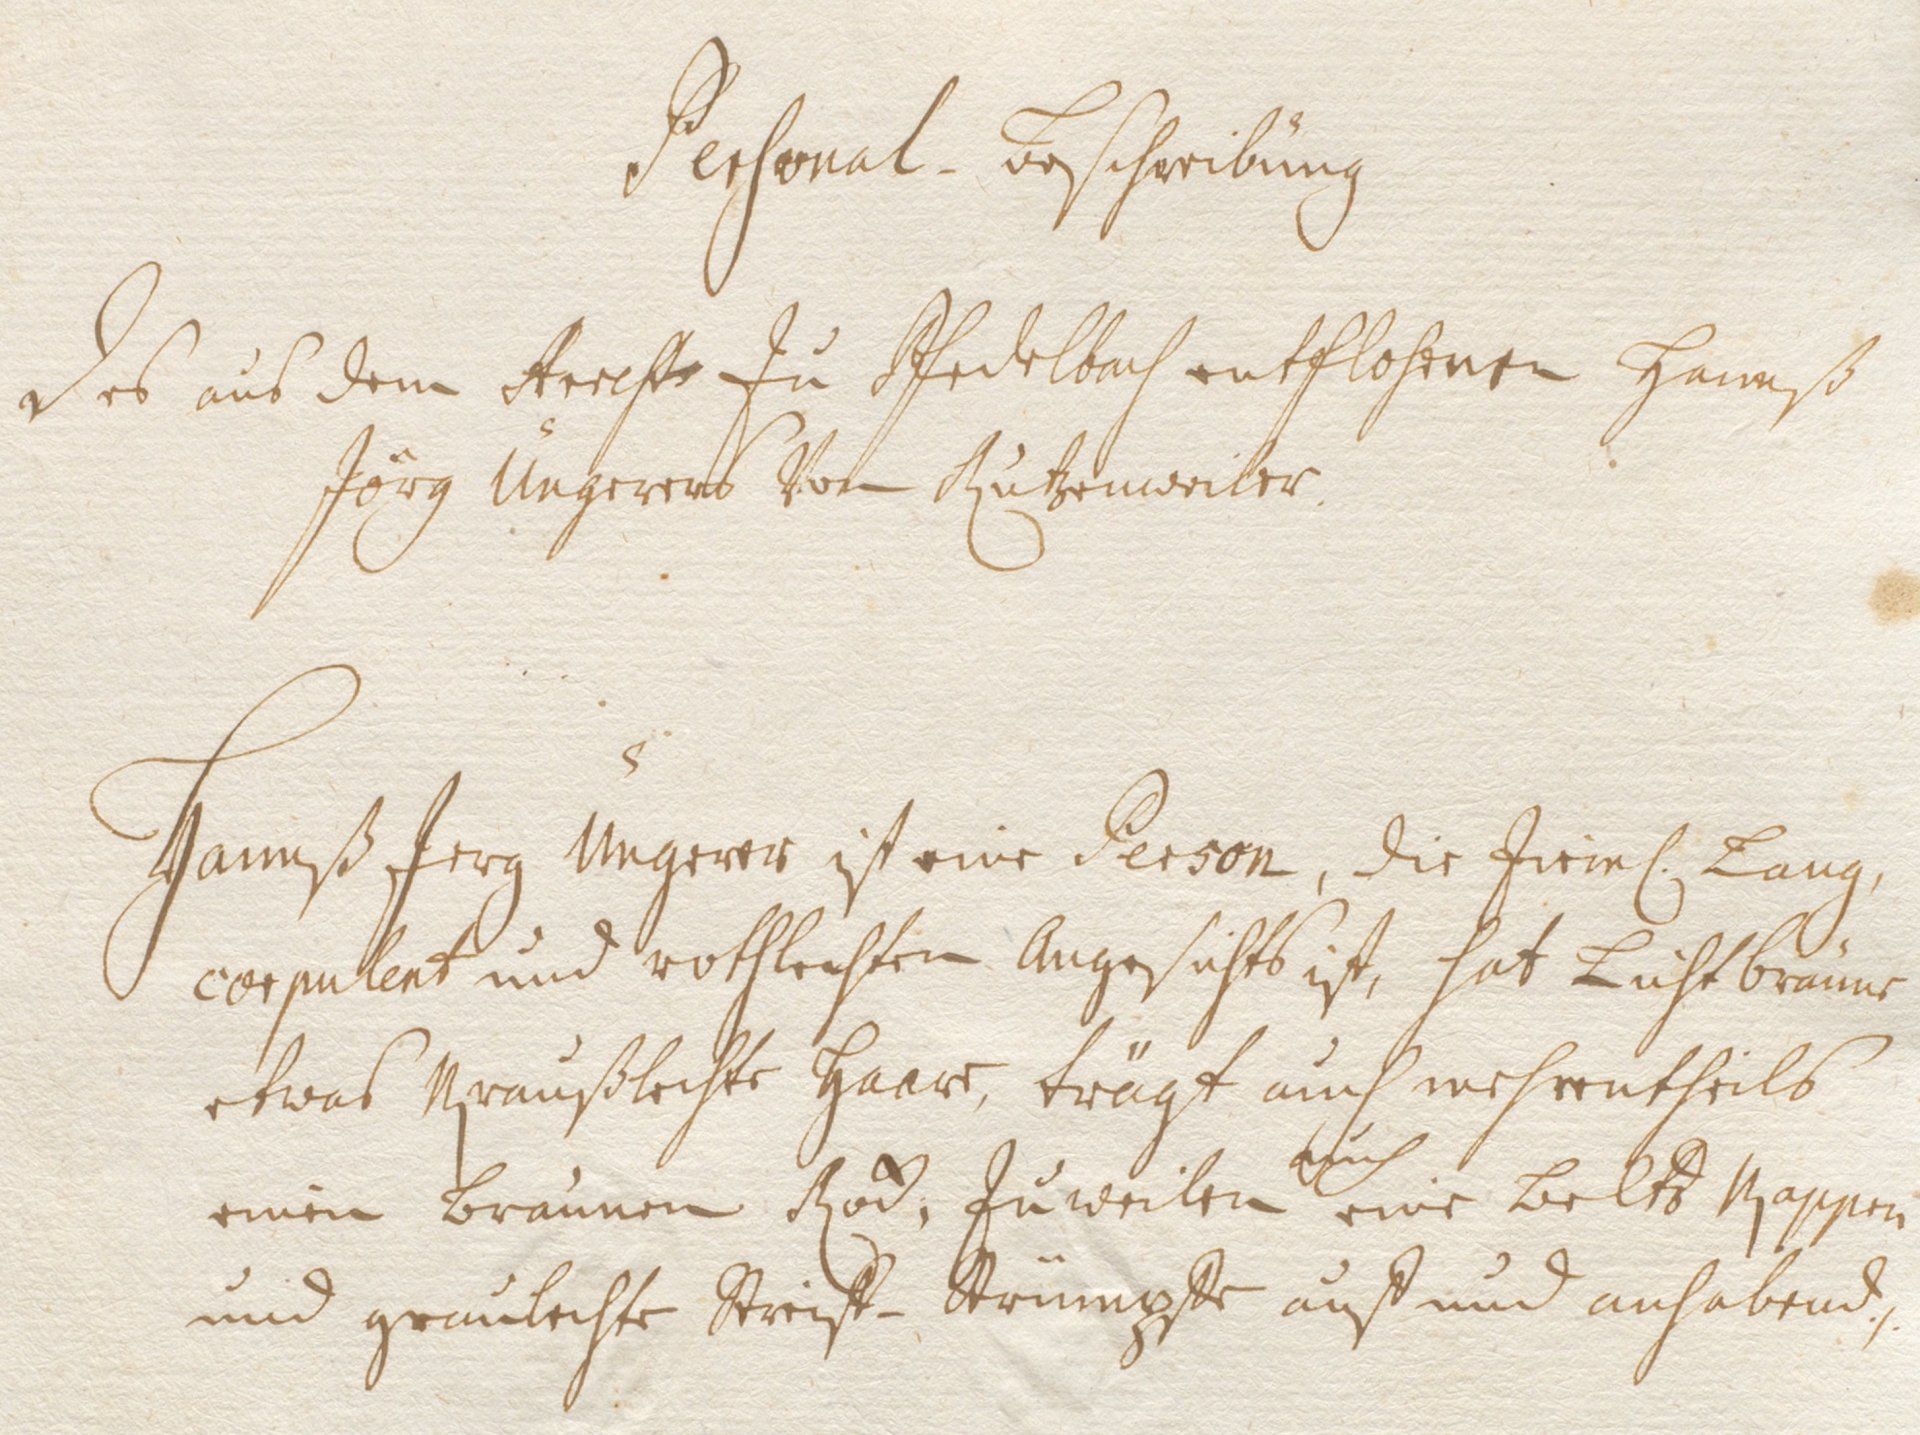 Personal-Beschreibung
Des aus dem Arrest zu Pfedelbach entflohenen Hannß
Jörg Ungerers von Kutzenweiler.
Hannß Jerg Ungerer ist eine Person, die zieml. Lang,
corpulent und rothlechten Angesichts ist, hat Lichtbraune
etwas Kraußlechte Haare, trägt auch mehrentheils
einen Braunen Rock, zuweilen auch eine Beltz Kappen
und graulechte Streiff-Strümpffe auff und anhabend.